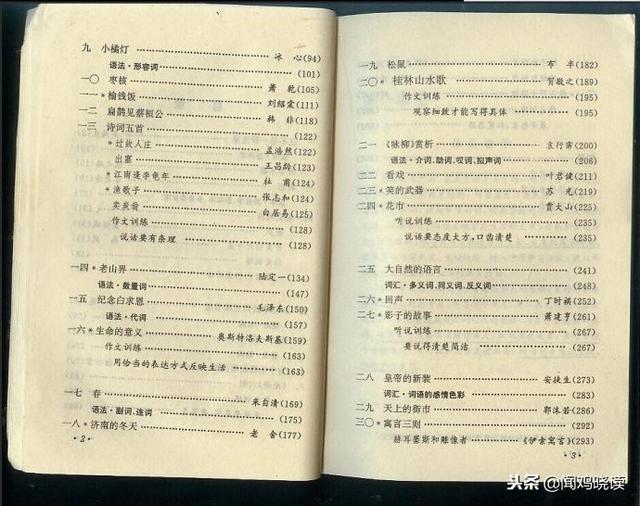 九 小橘灯……冰 心(94)
语法·形容词……(101)
一〇 枣核……萧 乾(105)
一一*榆钱饭……刘绍棠(111)
一二 扁鹊见蔡桓公……韩 非(118)
一三 诗词五首……(122)
*过故人庄……孟浩然(122)
出塞……王昌龄(123)
*江南逢李龟年……杜 甫(124)
*渔歌子……张志和(124)
卖炭翁……白居易(125)
作文训练……(128)
说话要有条理……(128)
一四*老山界……陆定一(134)
语法·数量词……(147)
一五 纪念白求恩……毛泽东(150)
语法·代词……(157)
一六*生命的意义……奥斯特洛夫斯基(159)
作文训练……(163)
用恰当的表达方式反映生活……(163)
一七 春……朱自清(169)
语法·副词、连词……(175)
一八*济南的冬天……老 舍(177)
·2·
一九 松鼠……布 丰(182)
二〇*桂林山水歌……贺敬之(189)
作文训练……(195)
观察细致才能写得具体……(195)
二一《咏柳》赏析……袁行霈(200)
语法·介词、助词、叹词、拟声词……(206)
二二 看戏……叶君健(211)
二三*笑的武器……苏 光(219)
二四*花市……贾大山(225)
听说训练……(235)
说话要态度大方，口齿清楚……(235)
二五 大自然的语言……(241)
词汇·多义词、同义词、反义词……(248)
二六*回声……丁时祺(252)
二七*影子的故事……萧建亨(261)
听说训练……(267)
要说得清楚简洁……(267)
二八 皇帝的新装……安徒生(273)
词汇·词语的感情色彩……(283)
二九 天上的街市……郭沫若(286)
三〇*寓言三则……(292)
赫耳墨斯和雕像者……《伊索寓言》(293)
·3·
头条 @闻鸡晓读